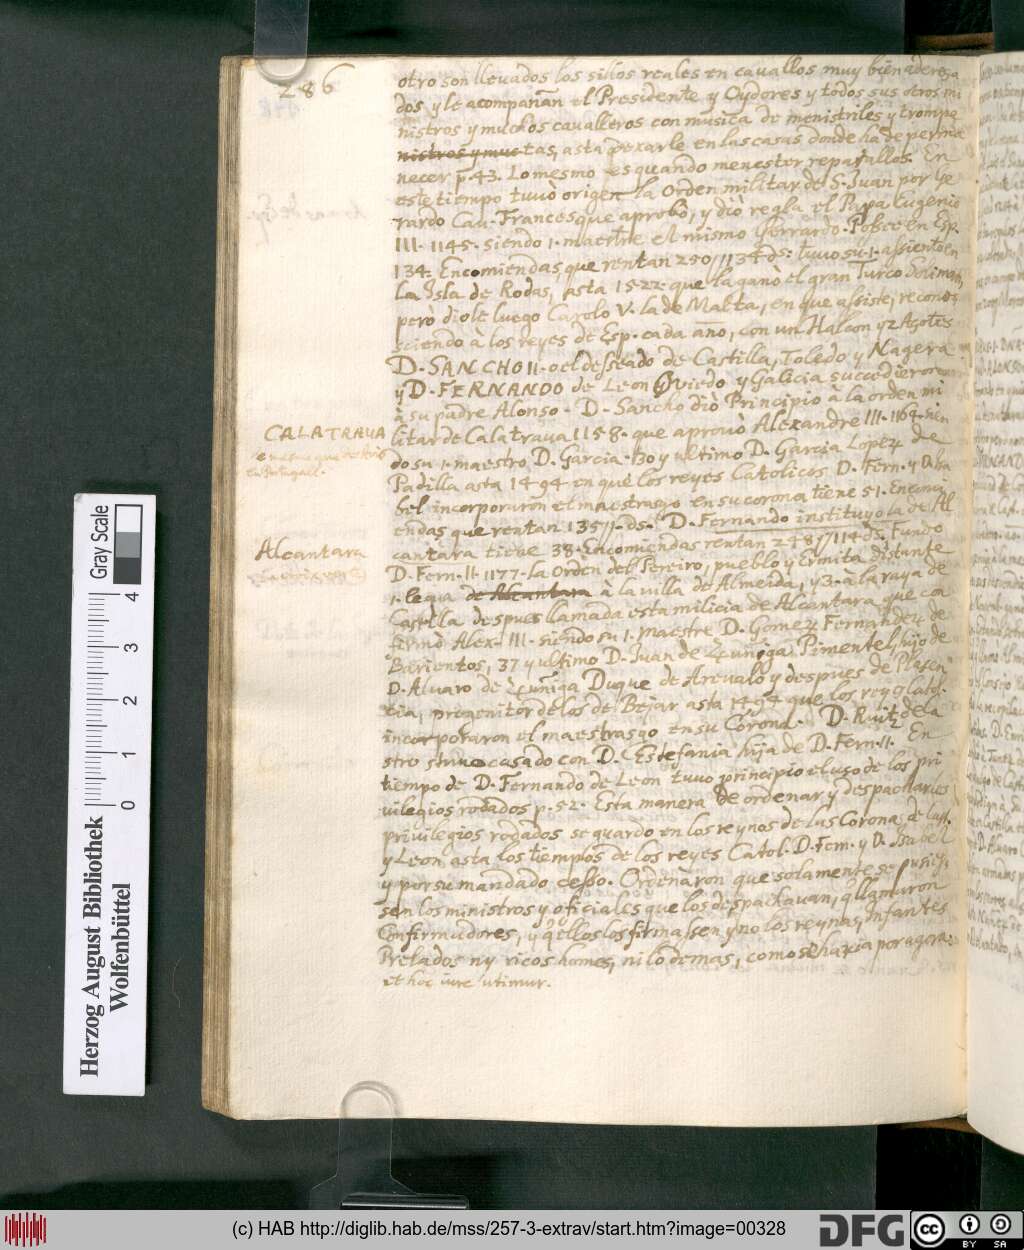 286
otro son llevados los sillos reales en cavallos muy bien adereça
dos y le acompañan el Presidente y Oydores y todos sus otros mi
nistros y muchos cavalleros con musica de menistriles y trompe
tas, asta dexarle en las casas donde ha de perma
necer p. 43. Lo mesmo es quando menester reparallos. En
este tiempo tuvò origen la Orden militar de S. Juan por Ge
rardo Cau. Frances que aprobò, y diò regla el Papa Eugenio
III. 1145. siendo 1. maestre el mismo Gerrardo. Posee en Esp.
134. Encomiendas, que rentan 250 ds: tuvo su 1. assiento en
La Isla de Rodas, asta 1522. que la ganò el gran Turco Soliman,
però diole luego Carolo V. la de Malta, en que assiste, recono
sciendo à los reyes de Esp. cada año, con un Halcon y 2 Açores
D. SANCHO II. o el desseado de Castilla, Toledo y Nagera
y D. FERNANDO de Leon Oviedo y Galicia succedieron
à su padre Alonso. D. Sancho diò Principio à la orden mi
CALATRAUA
litar de Calatraua 1158. que aprovò Alexandre III. 1164. sien
do su 1. maestro D. Garcia. 30 y ultimo D. Garcia Lopez de
en Portugal.
Padilla asta 1494 en que los reyes Catolicos D. Fern. y D. Isa
bel incorporaron el maestrasgo en su corona, tiene 51. Encomi
endas que rentan 135 ds. D. Fernando instituyo la de Al
Alcantara
cantara tiene 38. Encomiendas rentan 248 114 ds. Fundo
D. Fern. II. 1177. la Orden del Pereiro, pueblo y Ermita distante
1. legua de Alcantara à la villa de Almeida, y 3. à la raya de
Castilla despues llamada esta milicia de Alcantara que con
firmò Alex. III. siendo su 1. maestre D. Gomez Fernandez de
Barientos, 37 y ultimo D. Juan de Zuñiga Pimentel, hijo de
D. Alvaro de Zuñiga Duque de Arevalo y despues de Plasen
cia, progenitor de los de Bejar asta 1494 que los reyes Catol.
incorporaron el maestrasgo en su Corona. D. Ruiz de la
stro stuvo casado con D. Estefania hija de D. Fern. II. En
tiempo de D. Fernando de Leon tuvo principio el uso de los pri
vilegios rodados p. 52. Esta manera de ordenar y despacharles
privilegios rodados se guardo en los reynos de las Coronas de Cast.
y Leon asta los tiempos de los reyes Catol. D. Fern. y D. Isabel
y por su mandado cesso. Ordenaron que solamente se pusies
sen los ministros y oficiales que los despachauan, q llamaron
Confirmadores, y q ellos los firmassen y no los reynas, Infantes
Prelados ny ricos homes, ni lo demas, como se hazia por agora
et hoc iure utimur.
Gray Scale
4
3
2
1
0
Herzog August Bibliothek
Wolfenbüttel
(c) HAB http://diglib.hab.de/mss/257-3-extrav/start.htm?image=00328
DFG
cc
BY SA